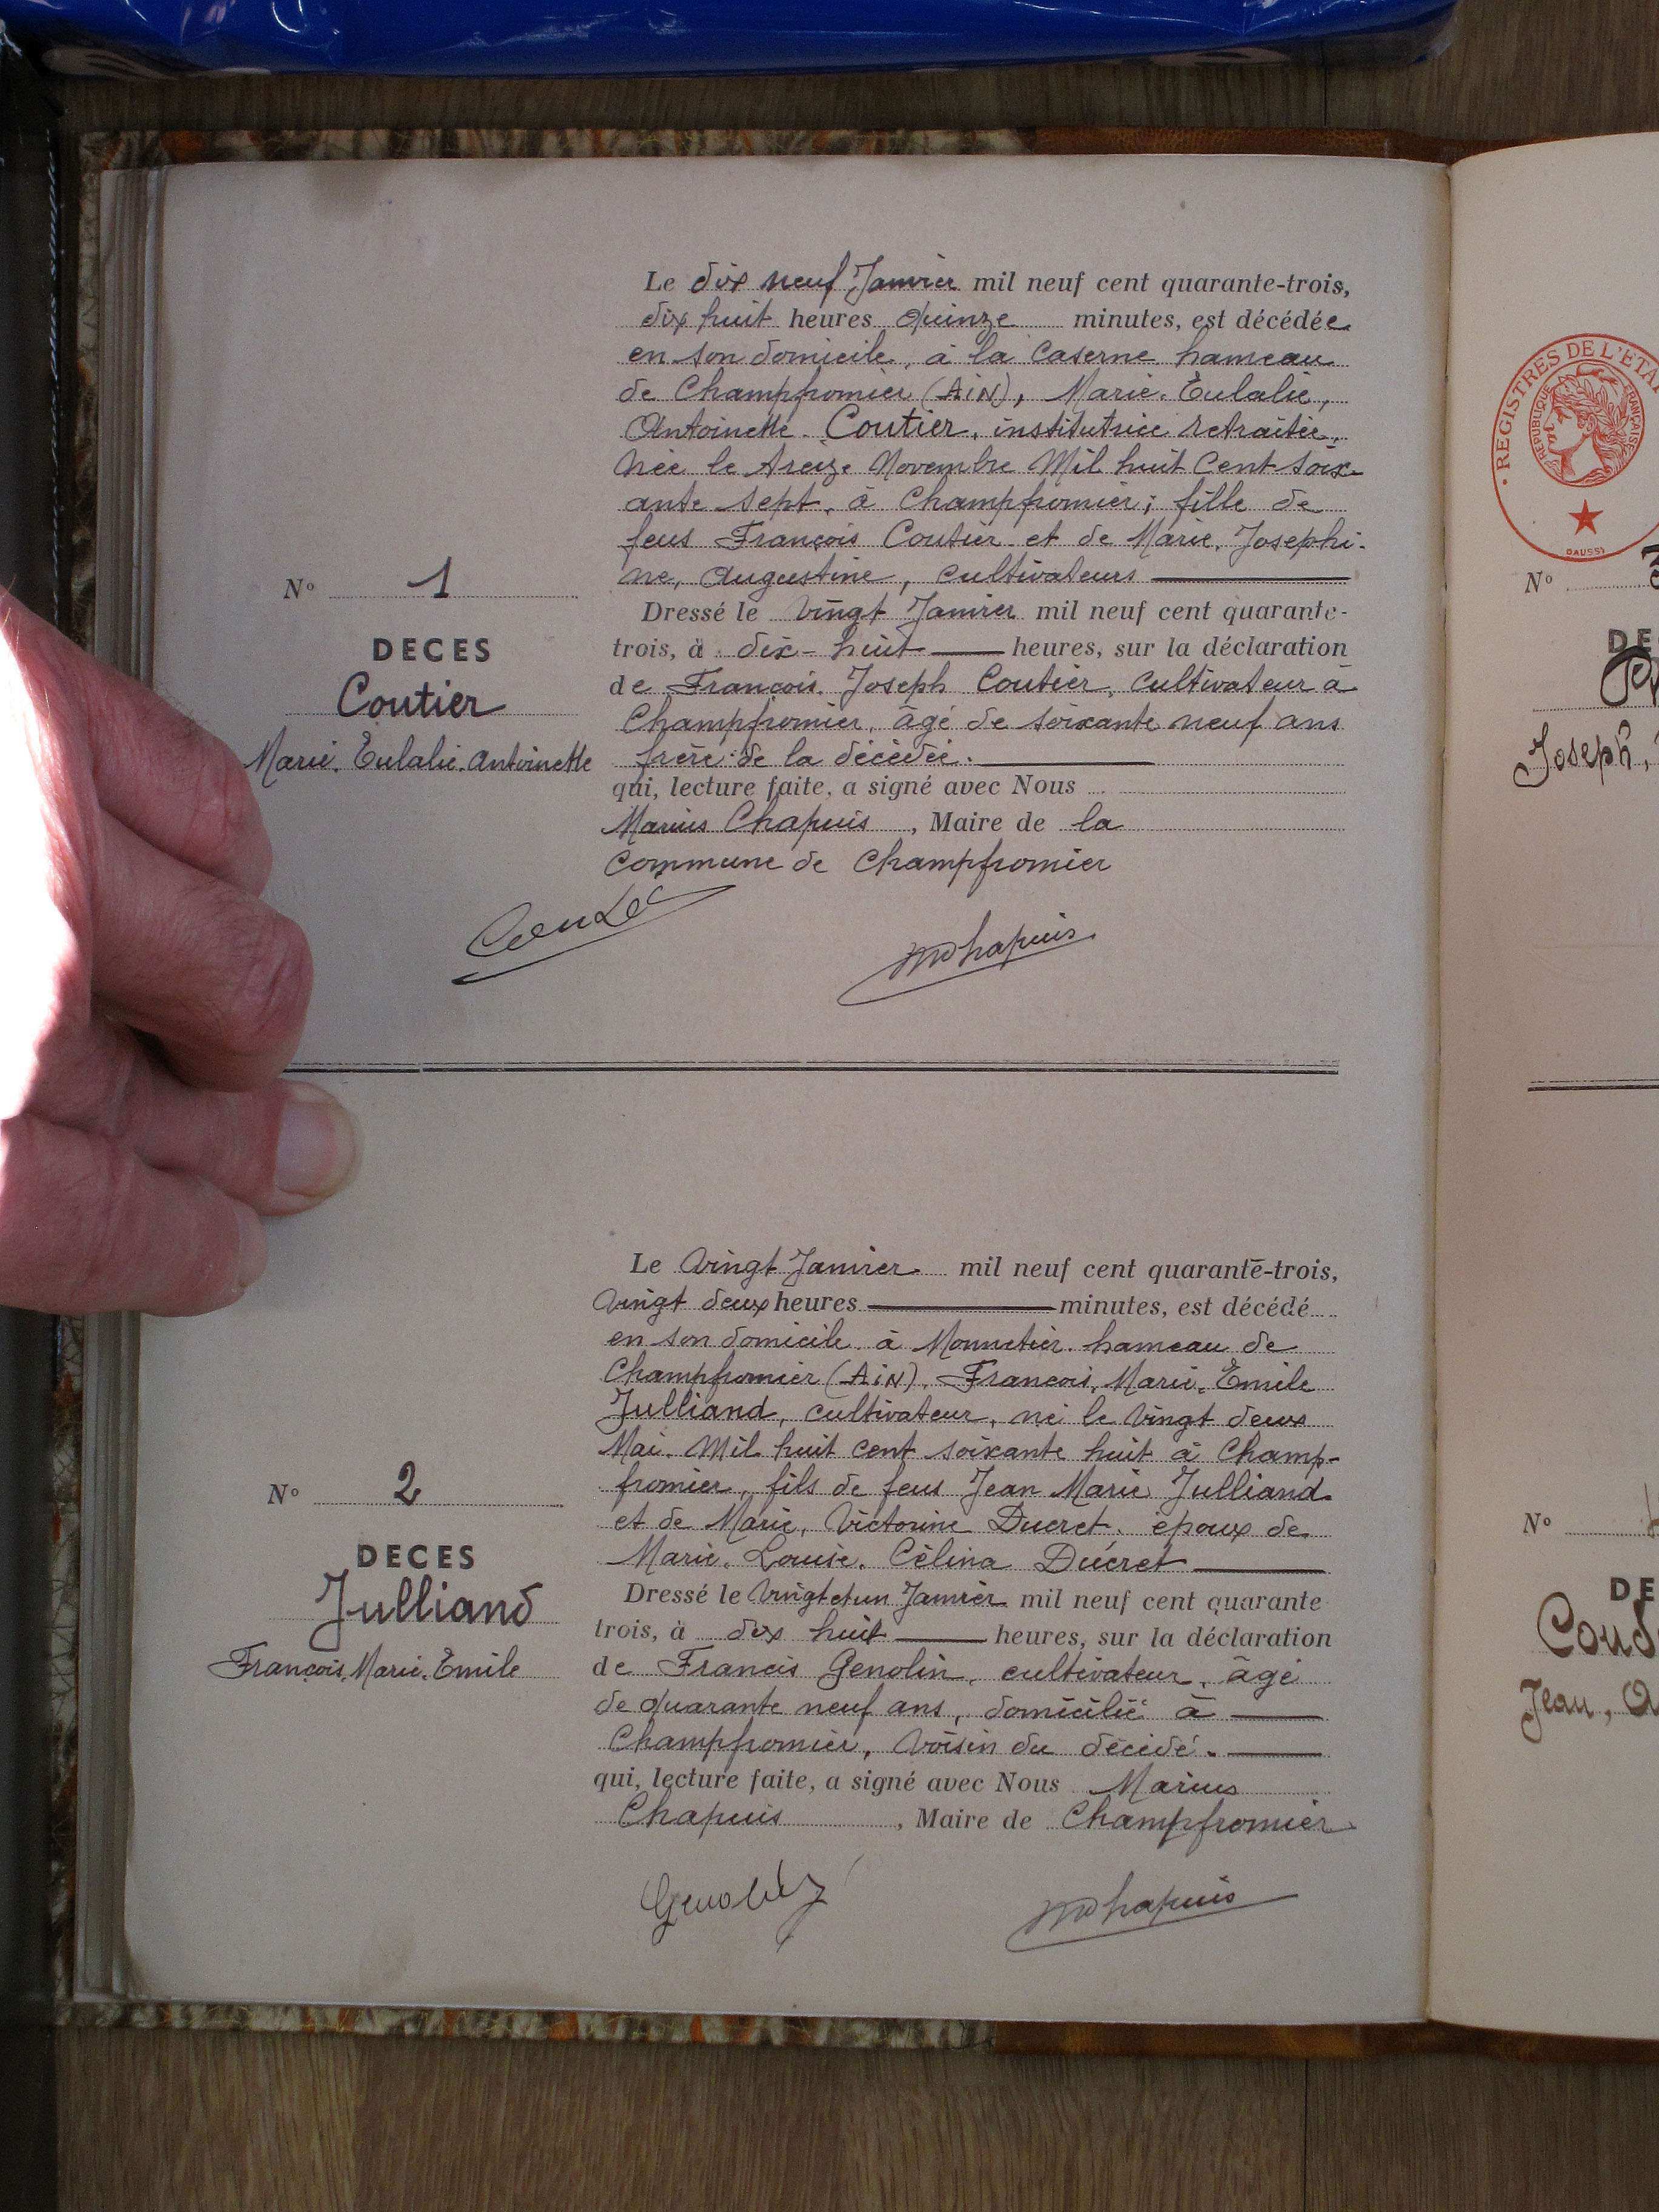 Le dix neuf Janvier mil neuf cent quarante-trois,
dix huit heures quinze minutes, est décédée
en son domicile, à la Caserne hameau
de Champfromier (AiN), Marie. Eulalie,
Antoinette. Coutier, institutrice retraitée,
Née le treize Novembre Mil huit Cent soix-
ante sept, à Champfromier; fille de
feus François Coutier et de Marie, Josephi-
ne, Augustine, cultivateurs
Dressé le Vingt Janvier mil neuf cent quarante-
trois, à dix-huit heures, sur la déclaration
de François. Joseph Coutier, Cultivateur à
Champfromier, âgé de soixante neuf ans
frère de la décédée.
qui, lecture faite, a signé avec Nous
Marius Chapuis, Maire de la
Commune de Champfromier
N° 1
DECES
Coutier
Marie. Eulalie. Antoinette
MChapuis
Le Vingt Janvier mil neuf cent quarante-trois,
Vingt deux heures minutes, est décédé
en son domicile à Monnetier hameau de
Champfromier (AiN), François, Marie, Emile
Julliand, cultivateur, né le Vingt deux
Mai Mil huit cent soixante huit à Champ-
fromier, fils de feus Jean Marie Julliand
et de Marie, Victorine Ducret, époux de
Marie. Louise. Célina Ducret
Dressé le Vingt et un Janvier mil neuf cent quarante
trois, à dix huit heures, sur la déclaration
de Francis Genolin, cultivateur, âgé
de quarante neuf ans, domicilié à
Champfromier, Voisin du décédé.
qui, lecture faite, a signé avec Nous Marius
Chapuis, Maire de Champfromier
N° 2
DECES
Julliand
François, Marie, Emile
MChapuis
REGISTRES DE L'ÉTA
REPUBLIQUE FRANÇAISE
DAUSSI
N°
DE
Joseph,
N°
DE
Coud
Jean, A